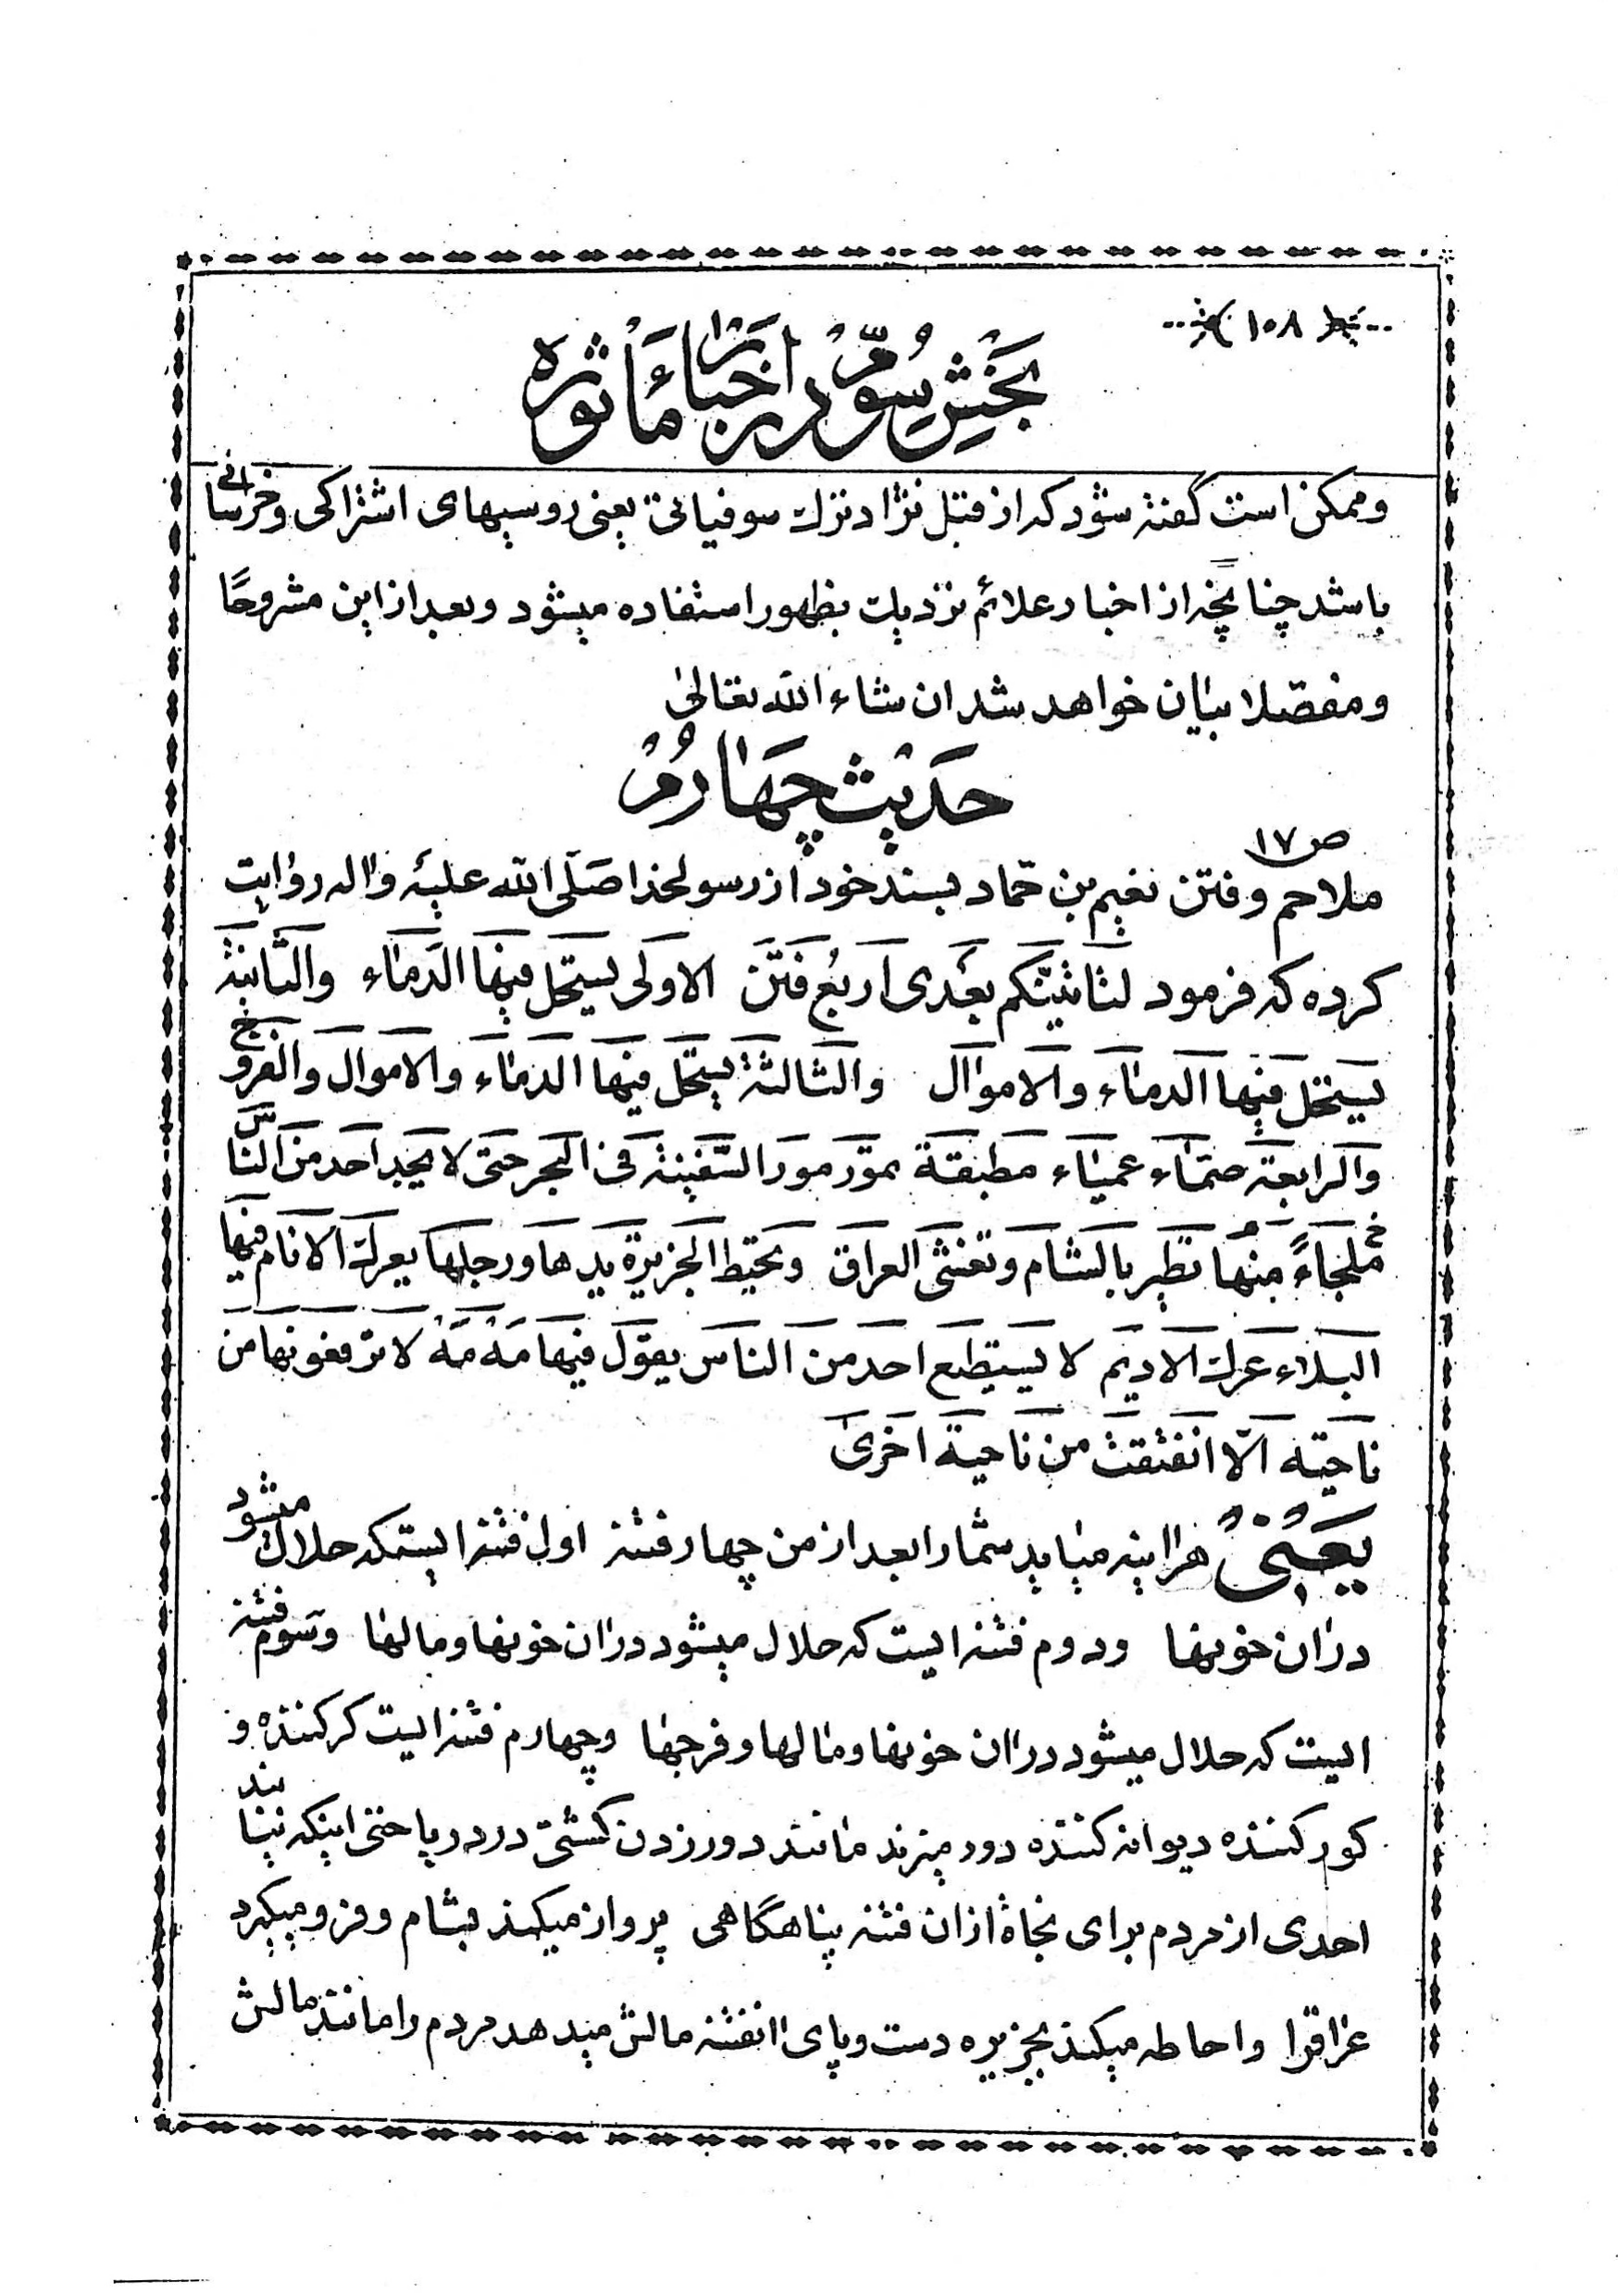 ۱۰۸
بخش سوم در اخبار مأثوره
و ممکن است گفته شود که از قبل نژاد ترک سوفیاتی یعنی روسیهای اشتراکی و خرسانی
باشد چنانچه از اخبار علائم نزدیک بظهور استفاده میشود و بعد از این مشروحًا
و مفصّلا بیان خواهد شد ان شاء الله تعالیٰ
حدیث چهارم
ص ۱۷
ملاحم و فتن نعیم بن حمّاد بسند خود از رسولخدا صَلَّی الله علیه و اله روایت
کرده که فرمود لتاتینّکم بعدی اربع فتن الاولی یستحل فیها الدماء والثّانیة
یستحل فیها الدماء والاموال والثالثة یستحل فیها الدماء والاموال والفروج
والرابعة صمّاء عمیاء مطبقة تمور مور السّفینة فی البحر حتی لا یجد احد من الناس
ملجاءً منها تطیر بالشام وتغشی العراق وتحیط الجزیرة بیدها ورجلها یعرک الانام فیها
البلاء عرک الادیم لا یستطیع احد من الناس یقول فیها مه مه لا ترفعونها من
ناحیته الّا انفتقت من ناحیة اخری
یعنی هر اینه میاید شما را بعد از من چهار فتنه اول فتنه ایستکه حلال میشود
دران خونها و دوم فتنه ایست که حلال میشود دران خونها و مالها و سوم فتنه
ایست که حلال میشود دران خونها و مالها و فرجها و چهارم فتنه ایست کر کننده و
کور کننده دیوانه کننده دور میزند مانند دور زدن کشتی در دریا حتی اینکه نیابند
احدی از مردم برای نجاة از ان فتنه پناهگاهی پرواز میکند بشام و فرو میگیرد
عراقرا و احاطه میکند بجزیره دست و پای انفتنه مالش میدهد مردم را مانند مالش